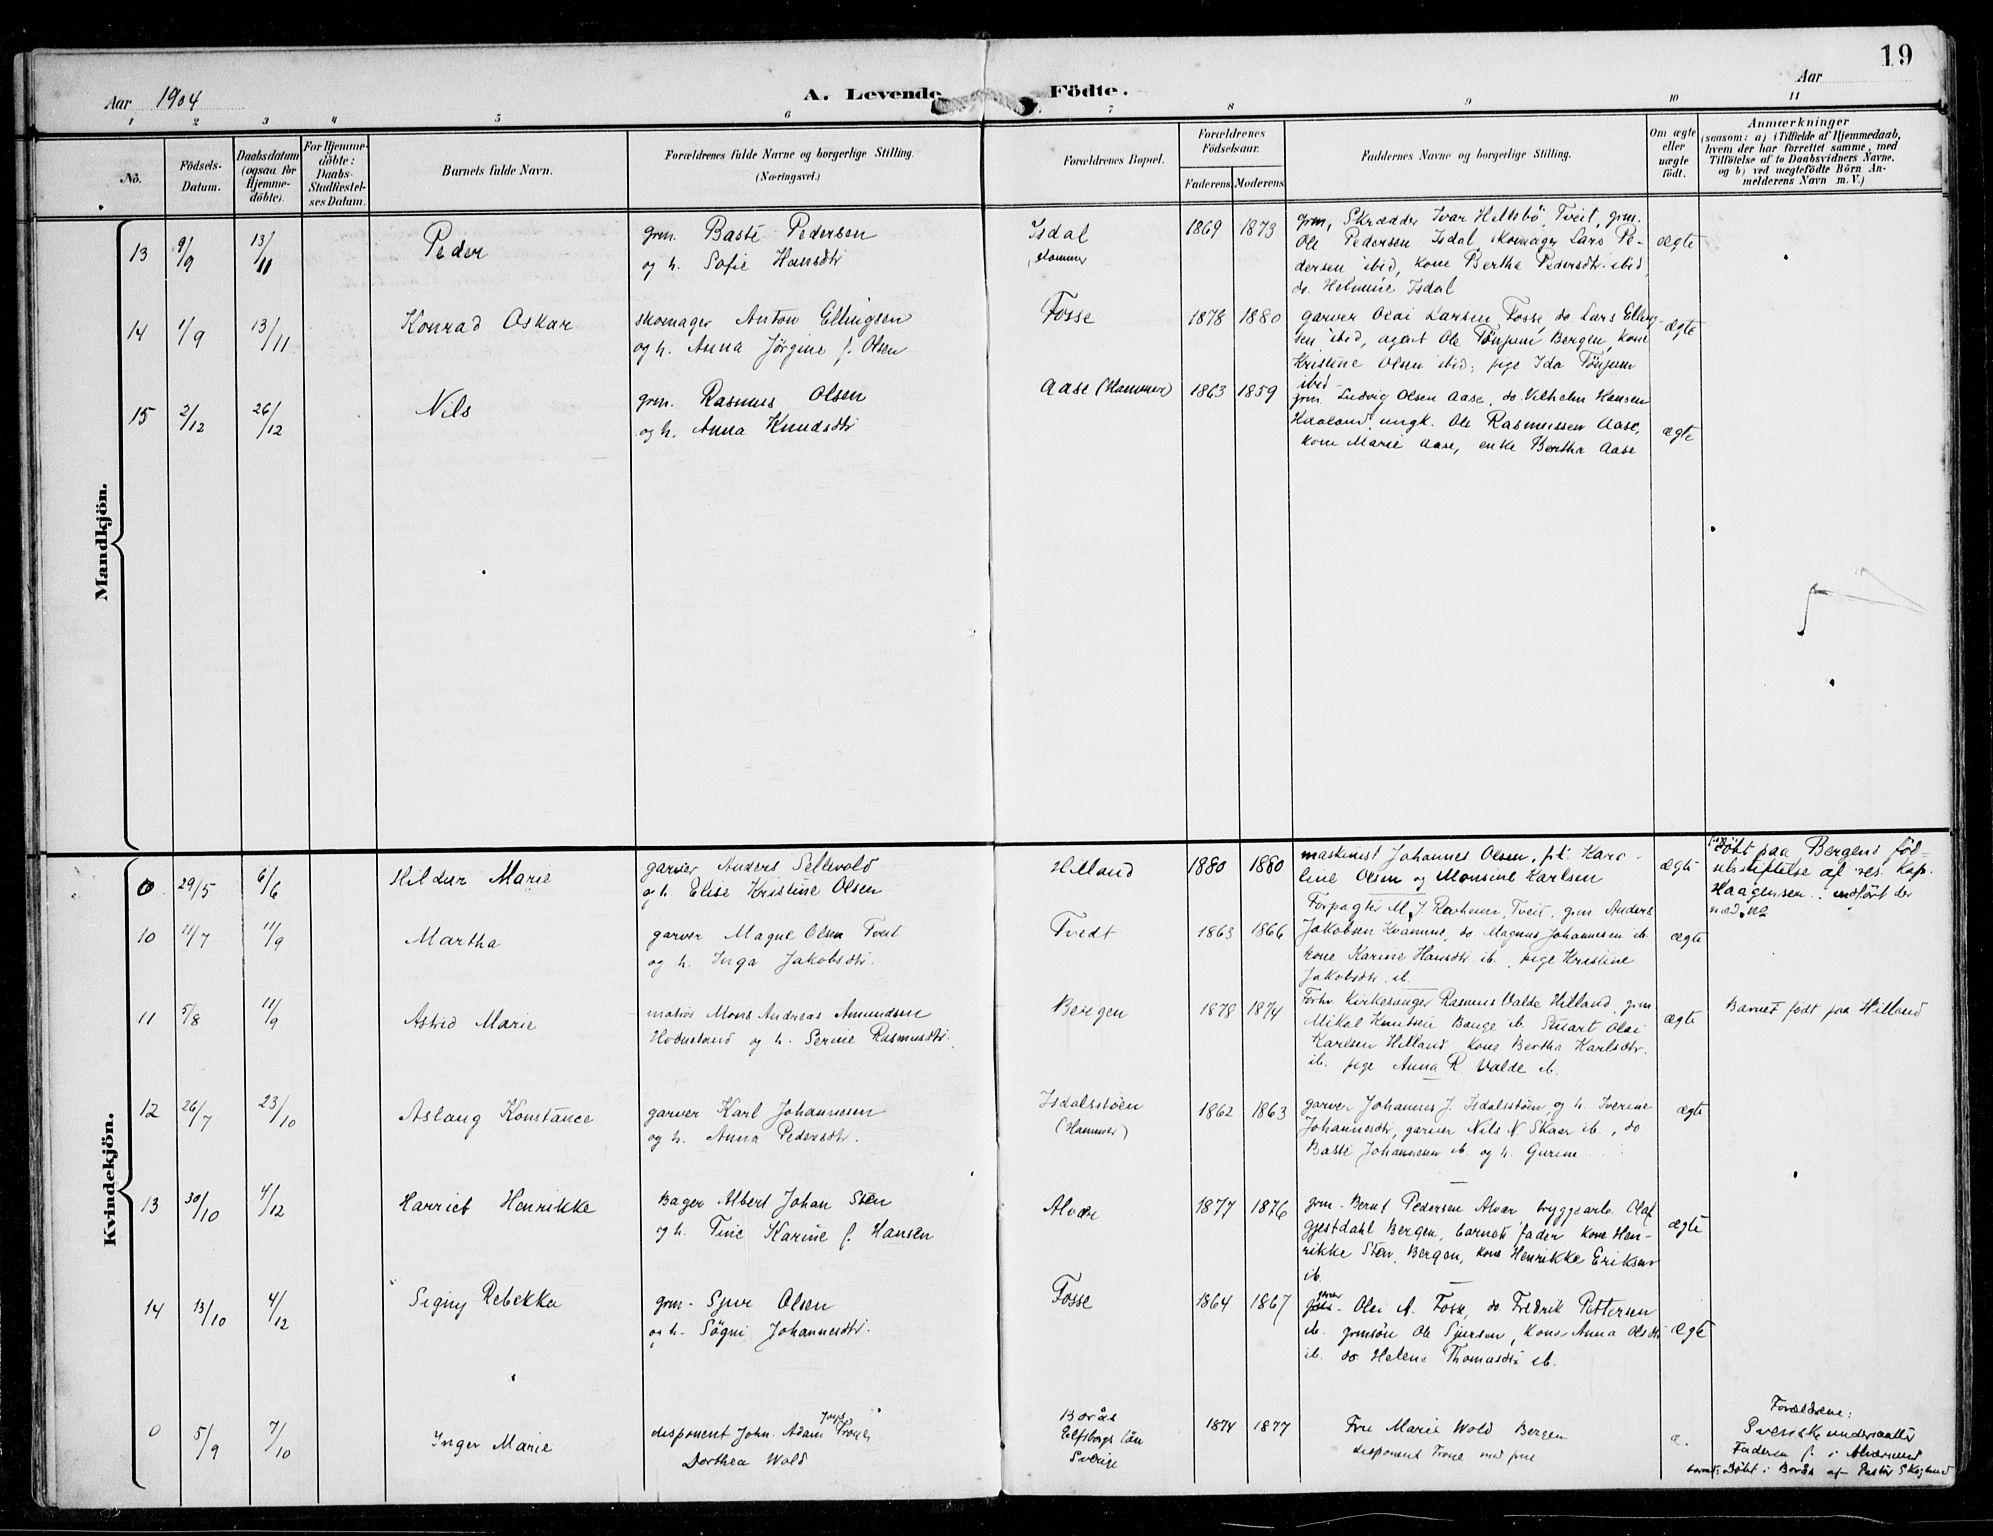 19
Aar 1904
A. Levende Födte.
Aar
1 2 3 4 5 6 7 8 9 10 11
No.
Födsels-Datum.
Daabsdatum (ogsaa for Hjemme-döbte).
For Hjemme-döbte: Daabs-Stadfæstel-ses Datum.
Barnets fulde Navn.
Forældrenes fulde Navne og borgerlige Stilling.
(Næringsvei.)
Forældrenes Bopæl.
Forældrenes Födselsaar.
Faderens Moderens
Faddernes Navne og borgerlige Stilling.
Om ægte eller uægte födt.
Anmærkninger
(saasom: a) i Tilfælde af Hjemmedaab,
hvem der har forrettet samme, med
Tilföielse af to Daabsvidners Navne,
og b) ved uægtefödte Börn An-
melderens Navn m. V.)
Mandkjön.
13 9/9 13/11 Peder
grm. Baste Pedersen
og h. Sofie Hansdtr
Isdal
Hammer
1869 1873
grm, Skrædder Ivar Hellsbö, Tveit, grm.
Ole Pedersen Isdal, skomager Lars Pe-
dersen ibid, kone Bertha Pedersdtr. ibid,
do. Helmine Isdal
ægte
14 1/9 13/11 Konrad Oskar
skomager Anton Ellingsen
og h. Asena Jörgine f. Olsen
Fosse
1878 1880
garver Olai Larsen Fosse, do Lars Elling-
sen ibid, agent Ole Tönjum Bergen, kone
Kristine Olsen ibid; pige Ida Tönjum
ibid
ægte
15 2/12 26/12 Nils
grm. Rasmus Olsen
og h. Anna Knudsdtr
Aase (Hammer)
1863 1859
grm. Ludvig Olsen Aase, do. Vilhelm Hansen
Haaland, ungk. Ole Rasmussen Aase,
kone Marie Aase, enke Bertha Aase
ægte
Kvindekjön.
0 29/5 6/6 Hildur Marie
garver Anders Sellevold
og h. Elise Kristine Olsen
Hilland
1880 1880
maskinist Johannes Olsen, pk. Karo-
line Olsen og Monsine Karlsen
ægte
Döbt paa Bergens föd-
selsstiftelse af res. Kap.
Haagensen. indfört der
10 11/7 11/9 Martha
garver Magne Olsen Tveit
og h. Inga Jakobsdtr.
Tvedt
1863 1866
Forpagter M. J. Revheim, Tveit, grm Anders
Jakobsen Kvamme, do Magnus Johannesen ib.
kone Karine Hansdtr ib. pige Kristine
Jakobsdtr. ib.
ægte
11 5/8 11/9 Astrid Marie
matros Mons Andreas Amundsen
Hodneland og h. Serine Rasmusdtr.
Bergen
1878 1874
Forhv. Kirkesanger Rasmus Valde Hilland, grm
Mikal Knutsen Bauge ib. Stuart Olai
Karlsen Hilland kone Bertha Karlsdtr.
ib. pige Anna R. Valde ib.
ægte
Barnet födt paa Hilland
12 26/7 23/10 Aslaug Konstance
garver Karl Johannesen
og h. Anna Pedersdtr.
Isdalsstöen
(Hammer)
1862 1863
garver Johannes J. Isdalsstöen, og h. Iverine
Johannesdtr, garver Nils N Skaar ib., do
Baste Johannesen ib. og h. Gurine
ægte
13 30/10 4/12 Harriet Henrikke
Bager Albert Johan Sten
og h. Tine Karine f. Hansen
Alvær
1877 1876
grm. Bernt Pedersen Alvær bryggearb. Olaf
Gjestdahl Bergen, barnets fader kone Hen-
rikke Sten, Bergen, kone Henrikke Eriksen
ib.
ægte
14 13/10 4/12 Signy Rebekka
grm. Sjur Olsen
og h. Sögni Johannesdtr.
Fosse
1864 1867
garver Olai A. Fosse, do Fredrik Pettersen
ib. grmsön Ole Sjursen, kone Anna Olsdtr
ib. do Helene Thomasdtr ib.
ægte
0 5/9 7/10 Inger Marie
disponent John Adam Trone
Dorthea Wold
Borås
Elfsborgs län
Sverige
1874 1877
Fru Marie Wold Bergen
disponent Trone med frue
æ.
Forældrene:
Svenske undersaatter
Faderen f. i Alværsund
barnet: Döbt i Borås af Pastor Skoglund